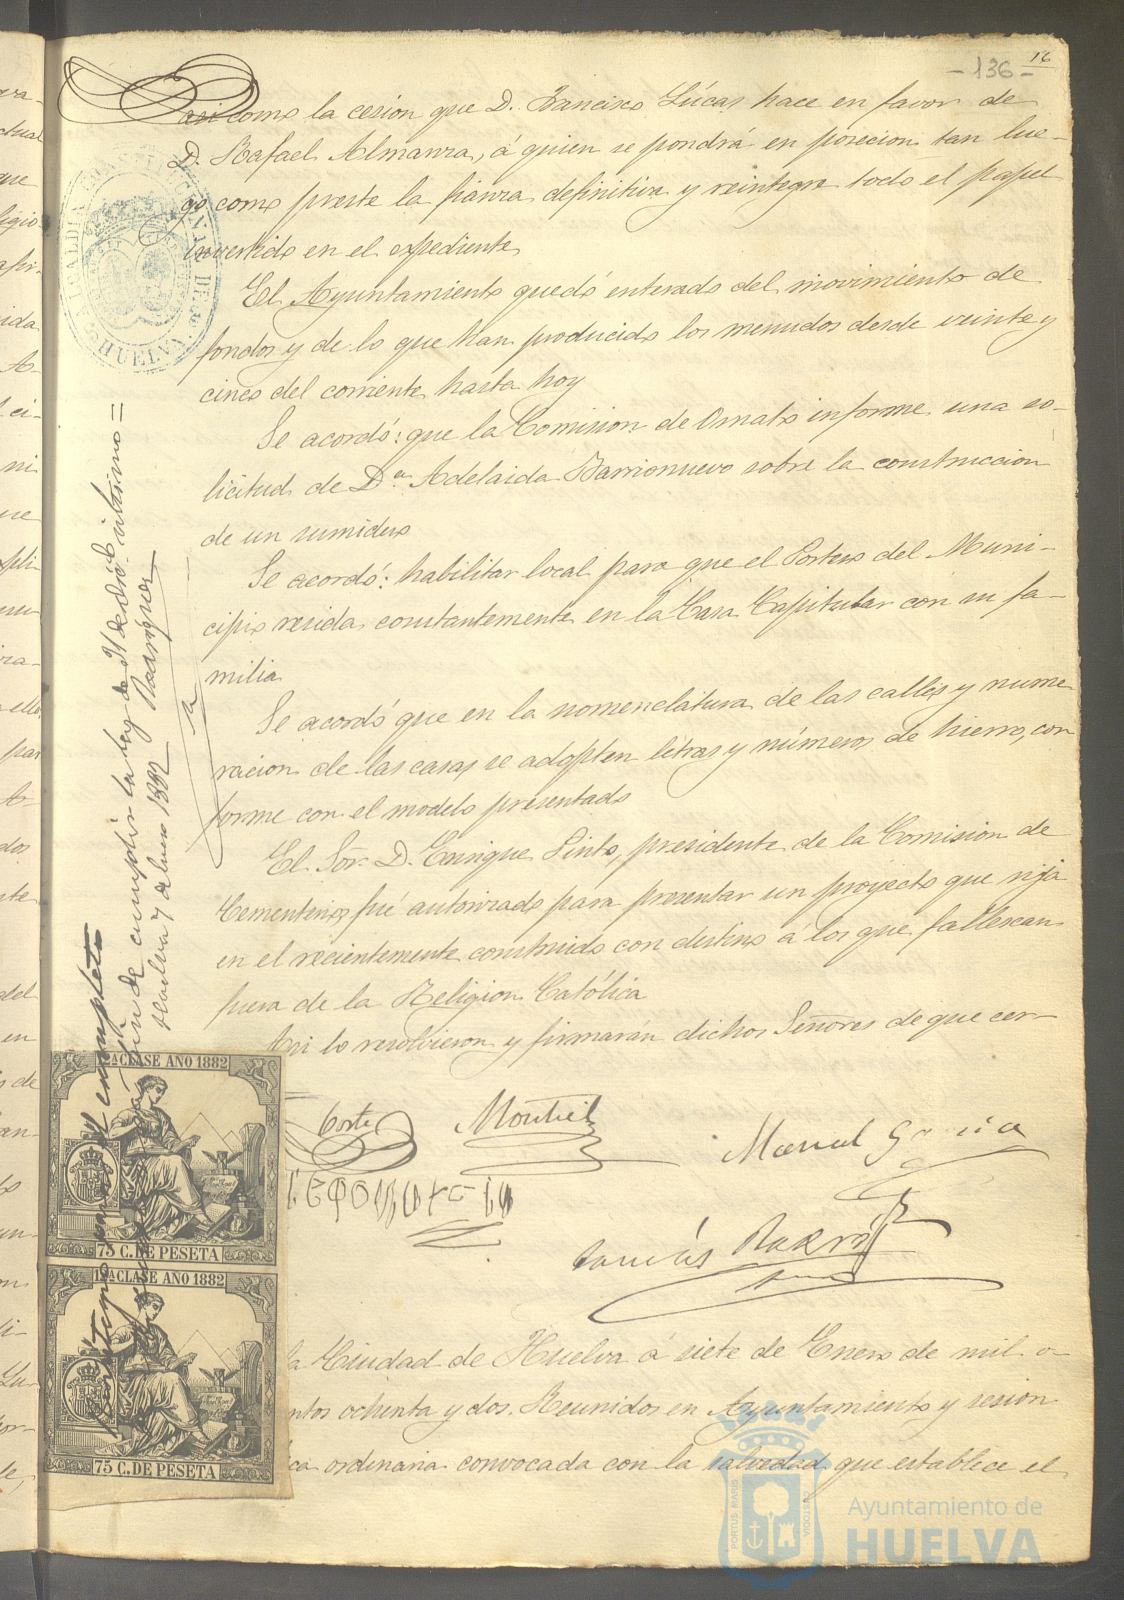 16
- 136 -
asi como la cesion que D. Francisco Lúcas hace en favor de
D. Rafael Almanza, á quien se pondrá en posecion tan lue-
go como preste la fianza definitiva y reintegre todo el papel
invertido en el expediente
El Ayuntamiento quedó enterado del movimiento de
fondos y de lo que han producido los menudos desde veinte y
cinco del corriente hasta hoy
Se acordó: que la Comision de Ornato informe una so-
licitud de D.ª Adelaida Barrionuevo sobre la construccion
de un sumidero
Se acordó: habilitar local para que el Portero del Muni-
cipio resida constantemente en la Casa Capitular con su fa-
milia
Se acordó que en la nomenclatura de las calles y nume
racion de las casas se adopten létras y números de hierro, con
forme con el modelo presentado
El Sor. D. Enrique Pinto, presidente de la Comision de
Cementerios fué autorizado para presentar un proyecto que rija
en el recientemente construido con destino á los que fallescan
fuera de la Religion Católica
Asi lo resolvieron y firmarán dichos Señores de que cer-
Corte
Montiel
Manuel Garcia
Tomás
la Ciudad de Huelva á siete de Enero de mil o-
ntos ochenta y dos. Reunidos en Ayuntamiento y sesion
ca ordinaria convocada con la salvedad que establece el
HUELVA
fin de cumplir la ley de 31 de dicbre. último =
Huelva 7 de Enero 1882 Rodriguez
12ª CLASE AÑO 1882
75 C. DE PESETA
12ª CLASE AÑO 1882
75 C. DE PESETA
PORTUS MARIS
CUSTODIA
Ayuntamiento de
HUELVA